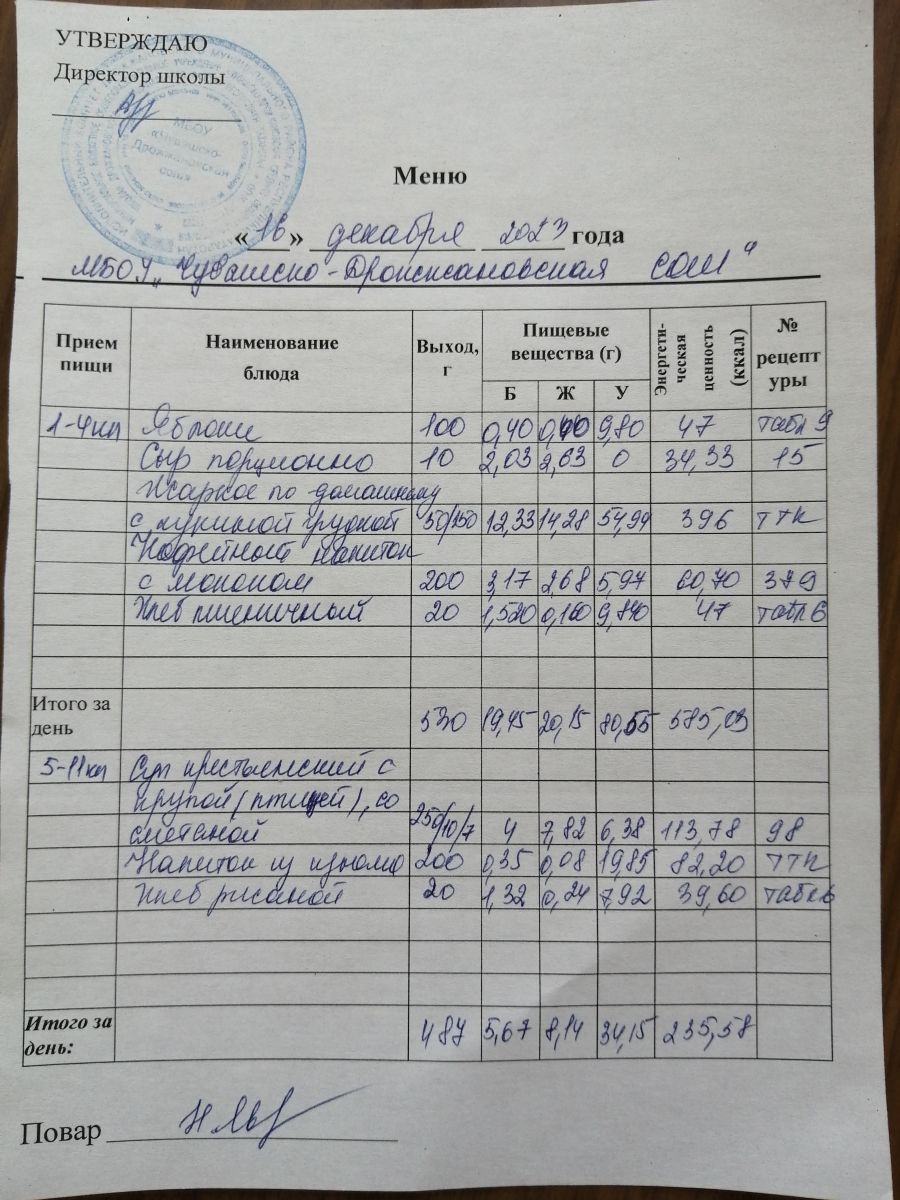 УТВЕРЖДАЮ
Директор школы
МБОУ
«Чувашско-
Дрожжановская
сош»
Меню
«16» декабря 2023 года
МБОУ „Чувашско-Дрожжановская сош"
Прием пищи Наименование блюда Выход, г Пищевые вещества (г) Б Ж У Энергетическая ценность (ккал) № рецептуры
1-4кл Яблоки 100 0,40 0,40 9,80 47 табл 9
Сыр порционно 10 2,03 2,63 0 34,33 15
Жаркое по домашнему
с куриной грудкой 50/150 12,33 14,28 54,94 396 ТТК
Кофейный напиток
с молоком 200 3,17 2,68 5,97 60,70 379
Хлеб пшеничный 20 1,520 0,160 9,840 47 табл 6
Итого за день 530 19,45 20,15 80,55 585,03
5-11кл Суп крестьянский с
крупой (птицей), со
сметаной 250/10/7 4 7,82 6,38 113,78 98
Напиток из изюма 200 0,35 0,08 19,85 82,20 ТТК
Хлеб ржаной 20 1,32 0,24 7,92 39,60 табл 6
Итого за день: 487 5,67 8,14 34,15 235,58
Повар